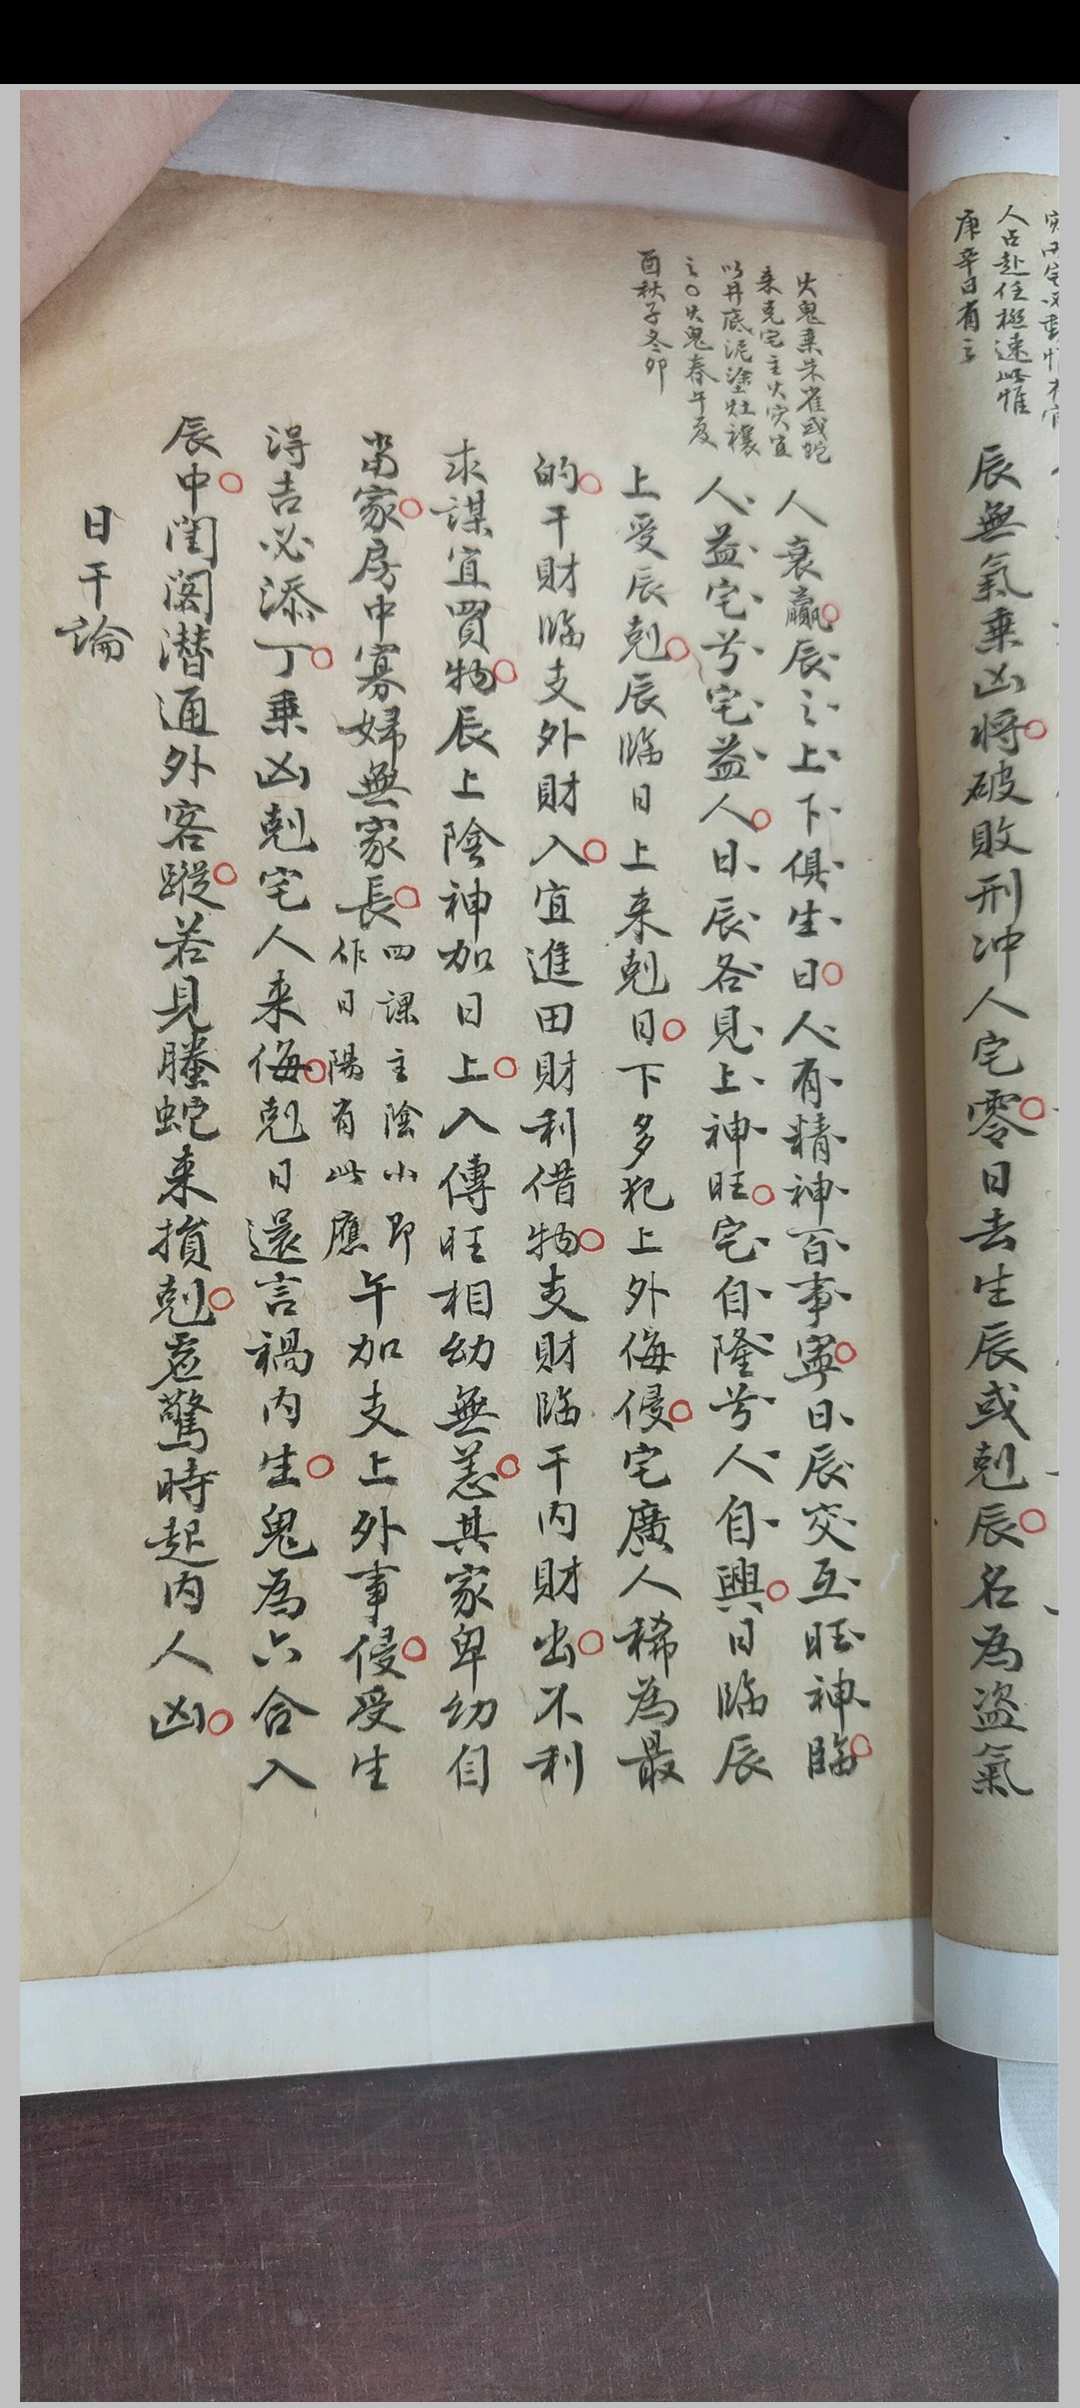 人占赴任極速此惟
庚辛日有之
辰無氣乗凶將○破敗刑冲人宅零○日去生辰或剋辰○名為盗氣
火鬼乗朱雀或蛇
来克宅主火灾宜
以井底泥塗灶禳
之○火鬼春午夏
酉秋子冬卯
人衰羸○辰之上下俱生日○人有精神百事寧○日辰交互旺神臨○
人益宅兮宅益人○日辰各見上神旺○宅自隆兮人自興○日臨辰
上受辰剋○辰臨日上来剋日○下多犯上外侮侵○宅廣人稀為最
的○干財臨支外財入○宜進田財利借物○支財臨干内財出○不利
求謀宜買物○辰上陰神加日上○入傳旺相幼無恙○其家卑幼自
當家○房中寡婦無家長○四課主陰小即
作日陽有此應
午加支上外事侵○受生
得吉必添丁○乗凶剋宅人来侮○剋日還言禍内生○鬼為六合入
辰中○閨閣潜通外客蹤○若見螣蛇来損剋○虚驚時起内人凶○
日干論